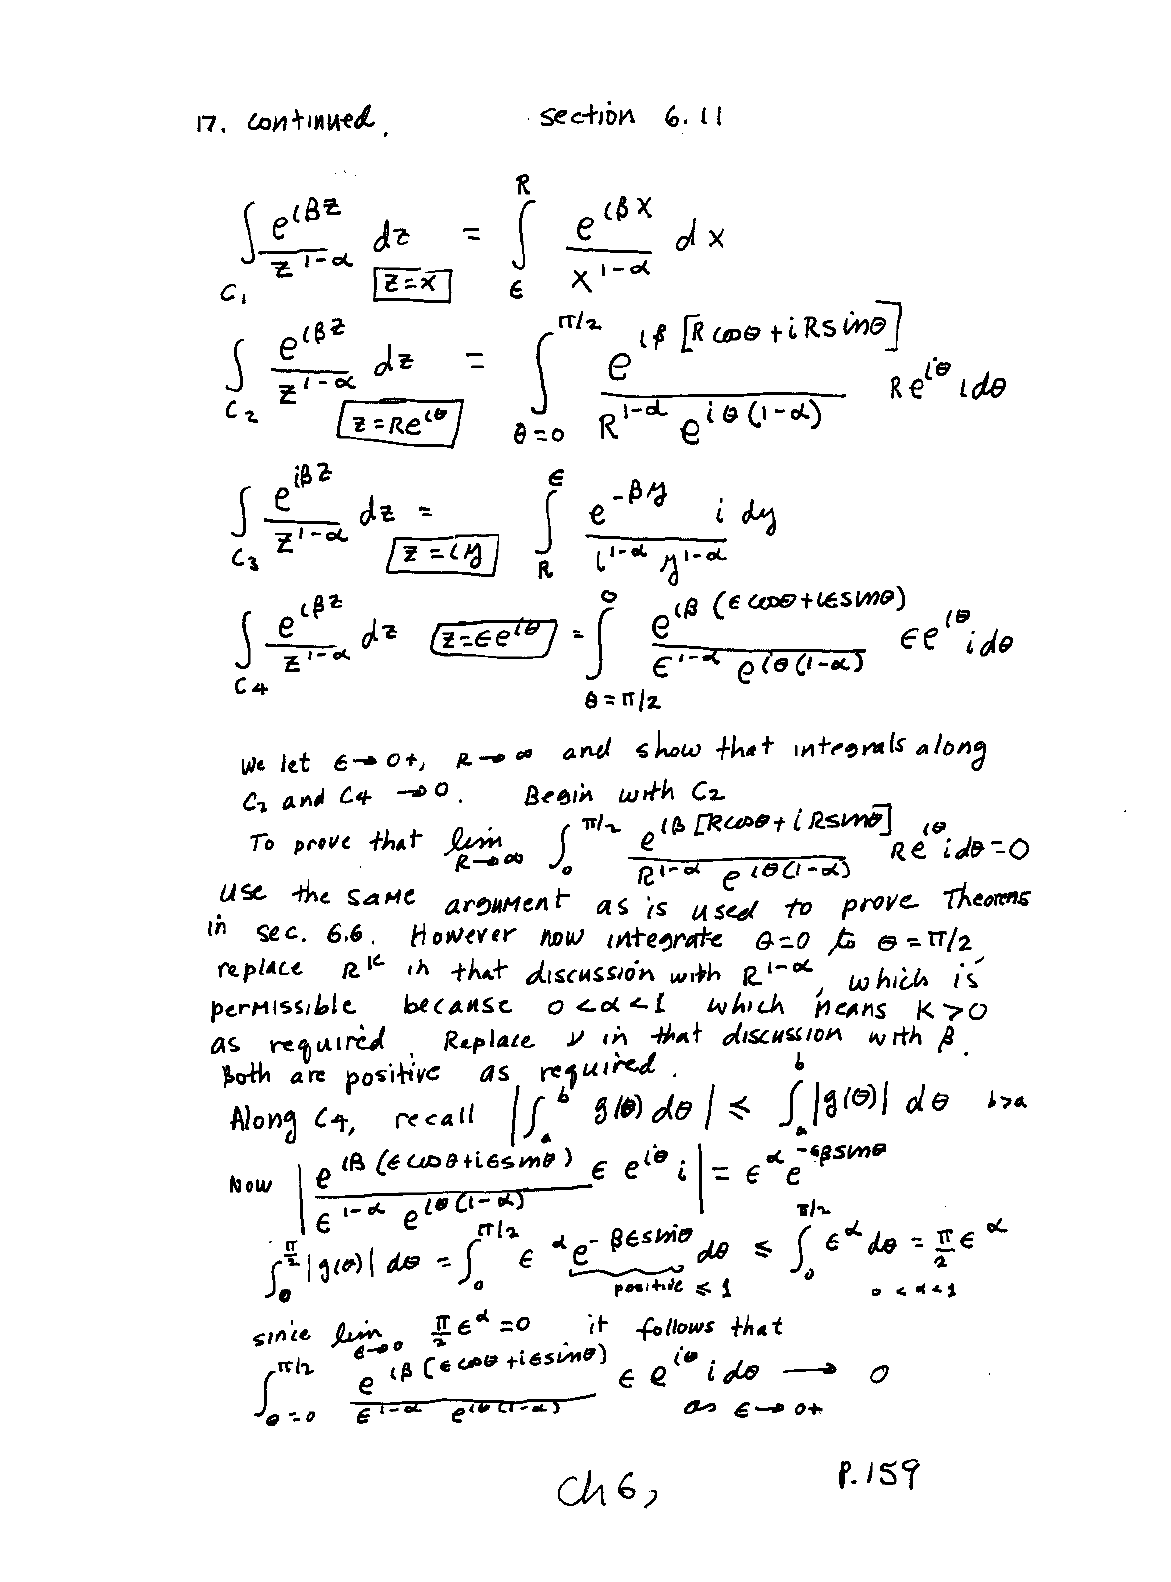 17. continued. section 6.11
∫_{C₁} e^{iβz}/z^{1-α} dz [z=x] = ∫_ϵ^R e^{iβx}/x^{1-α} dx
∫_{C₂} e^{iβz}/z^{1-α} dz [z=Re^{iθ}] = ∫_{θ=0}^{π/2} e^{iβ[R cosθ + i R sinθ]}/(R^{1-α} e^{iθ(1-α)}) R e^{iθ} i dθ
∫_{C₃} e^{iβz}/z^{1-α} dz = [z=iy] ∫_R^ϵ e^{-βy}/(i^{1-α} y^{1-α}) i dy
∫_{C₄} e^{iβz}/z^{1-α} dz [z=ϵe^{iθ}] = ∫_{θ=π/2}^0 e^{iβ(ϵ cosθ + iϵ sinθ)}/(ϵ^{1-α} e^{iθ(1-α)}) ϵe^{iθ} i dθ
We let ϵ→0+, R→∞ and show that integrals along
C₂ and C₄ →0. Begin with C₂
To prove that lim_{R→∞} ∫_0^{π/2} e^{iβ[R cosθ + i R sinθ]}/(R^{1-α} e^{iθ(1-α)}) R e^{iθ} i dθ = 0
use the same argument as is used to prove Theorems
in sec. 6.6. However now integrate θ=0 to θ=π/2,
replace R^k in that discussion with R^{1-α}, which is
permissible because 0<α<1 which means k>0
as required. Replace ν in that discussion with β.
Both are positive as required.
Along C₄, recall |∫_a^b g(θ) dθ| ≤ ∫_a^b |g(θ)| dθ b>a
Now |e^{iβ(ϵ cosθ + iϵ sinθ)}/(ϵ^{1-α} e^{iθ(1-α)}) ϵ e^{iθ} i| = ϵ^α e^{-ϵβ sinθ}
∫_0^{π/2} |g(θ)| dθ = ∫_0^{π/2} ϵ^α e^{-βϵ sinθ} dθ ≤ ∫_0^{π/2} ϵ^α dθ = π/2 ϵ^α
positive ≤ 1 0<α<1
since lim_{ϵ→0} π/2 ϵ^α = 0 it follows that
∫_{θ=0}^{π/2} e^{iβ(ϵ cosθ + iϵ sinθ)}/(ϵ^{1-α} e^{iθ(1-α)}) ϵ e^{iθ} i dθ → 0
as ϵ→0+
Ch 6, P.159